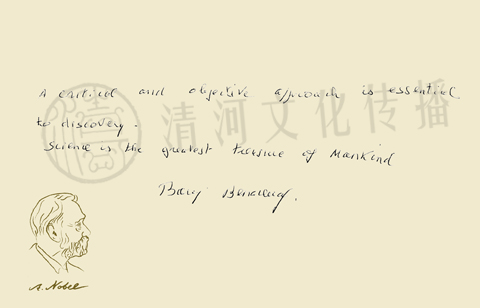 A critical and objective approach is essential
to discovery.
Science is the greatest treasure of Mankind
Baruj Benacerraf.
清河文化传播
A. Nobel